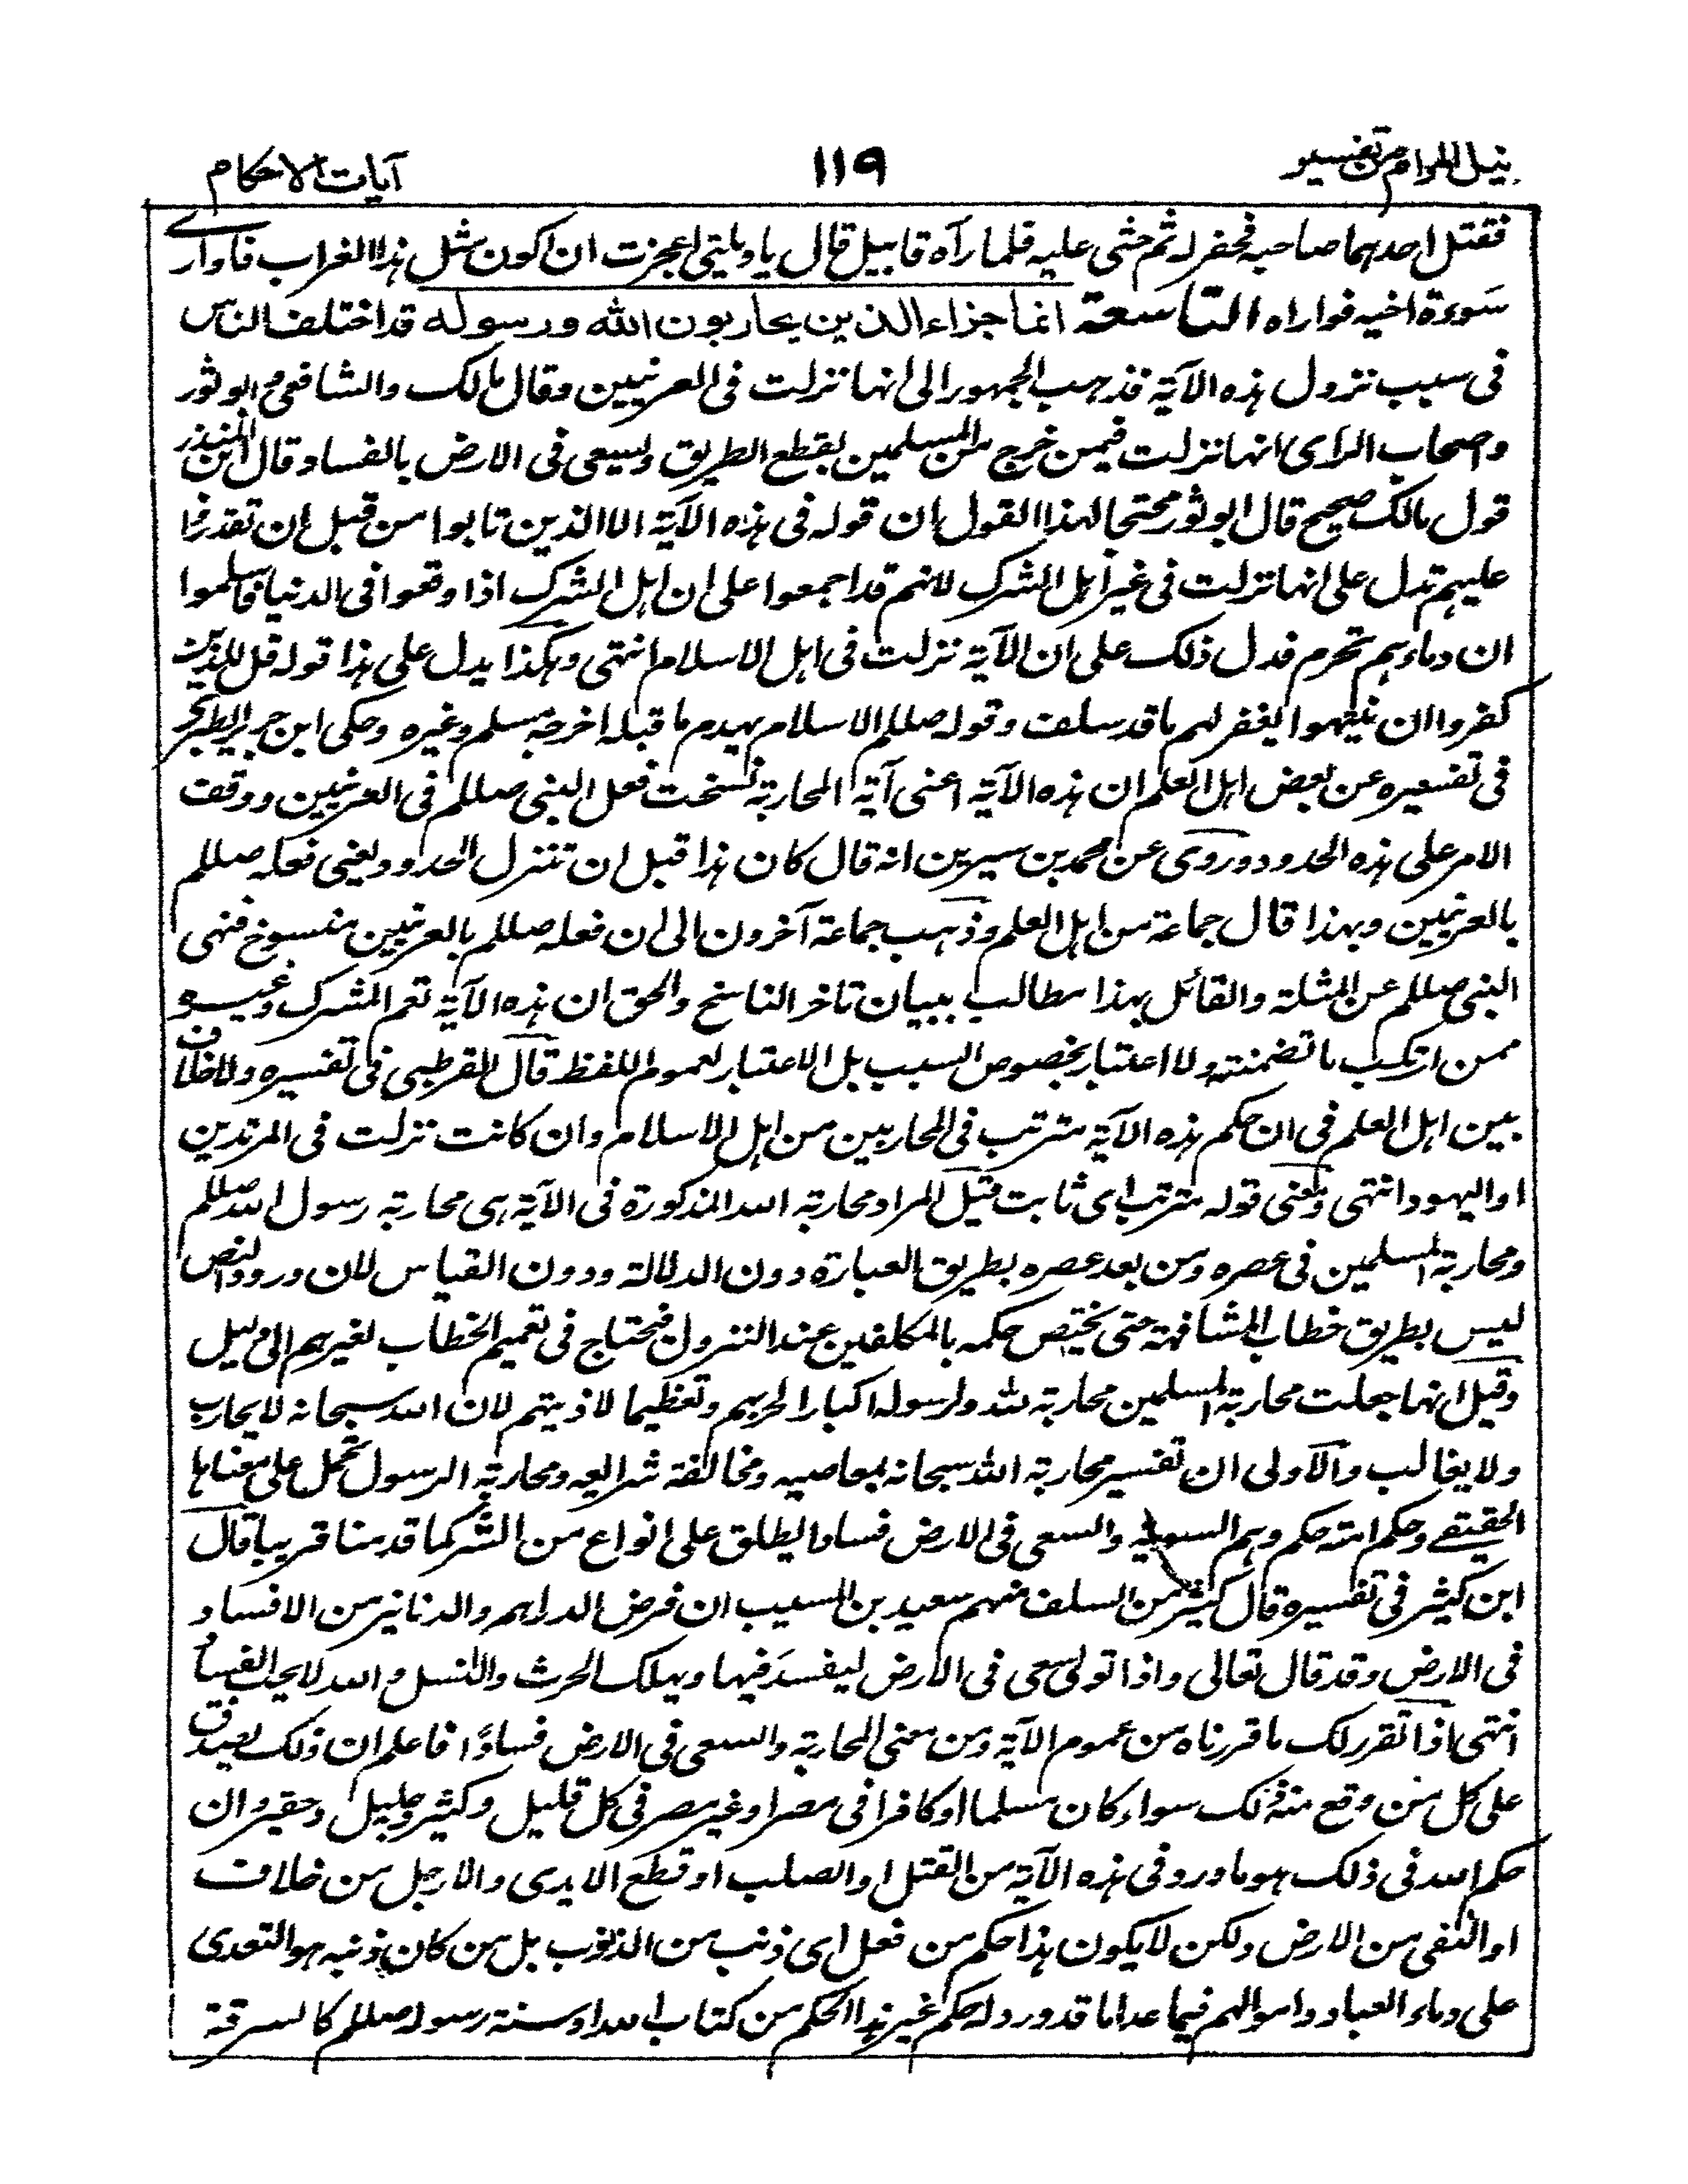 نيل المرام من تفسير
١١٩
آيات الاحكام
فقتل احدهما صاحبه فحفر له ثم حثى عليه فلما رآه قابيل قال ياويلتى اعجزت ان اكون مثل هذا الغراب فاوارى
سوءة اخيه فواراه التاسعة انما جزاء الذين يحاربون الله ورسوله قد اختلف الناس
فى سبب نزول هذه الآية فذهب الجمهور الى انها نزلت فى العرنيين وقال مالك والشافعى وابو ثور
واصحاب الراى انها نزلت فيمن خرج من المسلمين يقطع الطريق ويسعى فى الارض بالفساد قال ابن المنذر
قول مالك صحيح قال ابو ثور محتجا لهذا القول ان قوله فى هذه الآية الا الذين تابوا من قبل ان تقدروا
عليهم تدل على انها نزلت فى غير اهل الشرك لانهم قد اجمعوا على ان اهل الشرك اذا وقعوا فى الدنيا فاسلموا
ان دماءهم تحرم فدل ذلك على ان الآية نزلت فى اهل الاسلام انتهى وهكذا يدل على هذا قوله قل للذين
كفروا ان ينتهوا يغفر لهم ما قد سلف وقوله صللم الاسلام يهدم ما قبله اخرجه مسلم وغيره وحكى ابن جرير الطبرى
فى تفسيره عن بعض اهل العلم ان هذه الآية اعنى آية المحاربة نسخت فعل النبى صللم فى العرنيين ووقف
الامر على هذه الحدود وروى عن محمد بن سيرين انه قال كان هذا قبل ان تنزل الحدود يعنى فعله صللم
بالعرنيين وبهذا قال جماعة من اهل العلم وذهب جماعة آخرون الى ان فعله صللم بالعرنيين منسوخ فنهى
النبى صللم عن المثلة والقائل بهذا مطالب ببيان تاخر الناسخ والحق ان هذه الآية تعم المشرك وغيره
ممن ارتكب ما تضمنته ولا اعتبار بخصوص السبب بل الاعتبار لعموم اللفظ قال القرطبى فى تفسيره ولا خلاف
بين اهل العلم فى ان حكم هذه الآية مترتب فى المحاربين من اهل الاسلام وان كانت نزلت فى المرتدين
او اليهود انتهى ومعنى قوله مترتب اى ثابت قيل المراد محاربة الله المذكورة فى الآية هى محاربة رسول الله صللم
ومحاربة المسلمين فى عصره ومن بعد عصره بطريق العبارة دون الدلالة ودون القياس لان ورود النص
ليس بطريق خطاب المشافهة حتى يختص حكمه بالمكلفين عند النزول فيحتاج فى تعميم الخطاب لغيرهم الى دليل
وقيل انها جعلت محاربة المسلمين محاربة لله ولرسوله اكبارا لحربهم وتعظيما لاذيتهم لان الله سبحانه لا يحارب
ولا يغالب والاولى ان تفسير محاربة الله سبحانه بمعاصيه ومخالفة شرائعه ومحاربة الرسول تحمل على معناها
الحقيقى وحكم امته حكمه وهم اسوته والسعى فى الارض فسادا يطلق على انواع من الشر كما قدمنا قريبا قال
ابن كثير فى تفسيره قال كثير من السلف منهم سعيد بن المسيب ان قرض الدراهم والدنانير من الافساد
فى الارض وقد قال تعالى واذا تولى سعى فى الارض ليفسد فيها ويهلك الحرث والنسل والله لا يحب الفساد
انتهى اذا تقرر لك ما قررناه من عموم الآية ومن معنى المحاربة والسعى فى الارض فسادا فاعلم ان ذلك يصدق
على كل من وقع منه ذلك سواء كان مسلما او كافرا فى مصر او غير مصر فى كل قليل وكثير وجليل وحقير وان
حكم الله فى ذلك هو ما ورد فى هذه الآية من القتل او الصلب او قطع الايدى والارجل من خلاف
او النفى من الارض ولكن لا يكون هذا حكم من فعل اى ذنب من الذنوب بل من كان ذنبه هو التعدى
على دماء العباد واموالهم فيما عدا ما قد ورد له حكم غير هذا الحكم من كتاب الله او سنة رسوله صللم كالسرقة